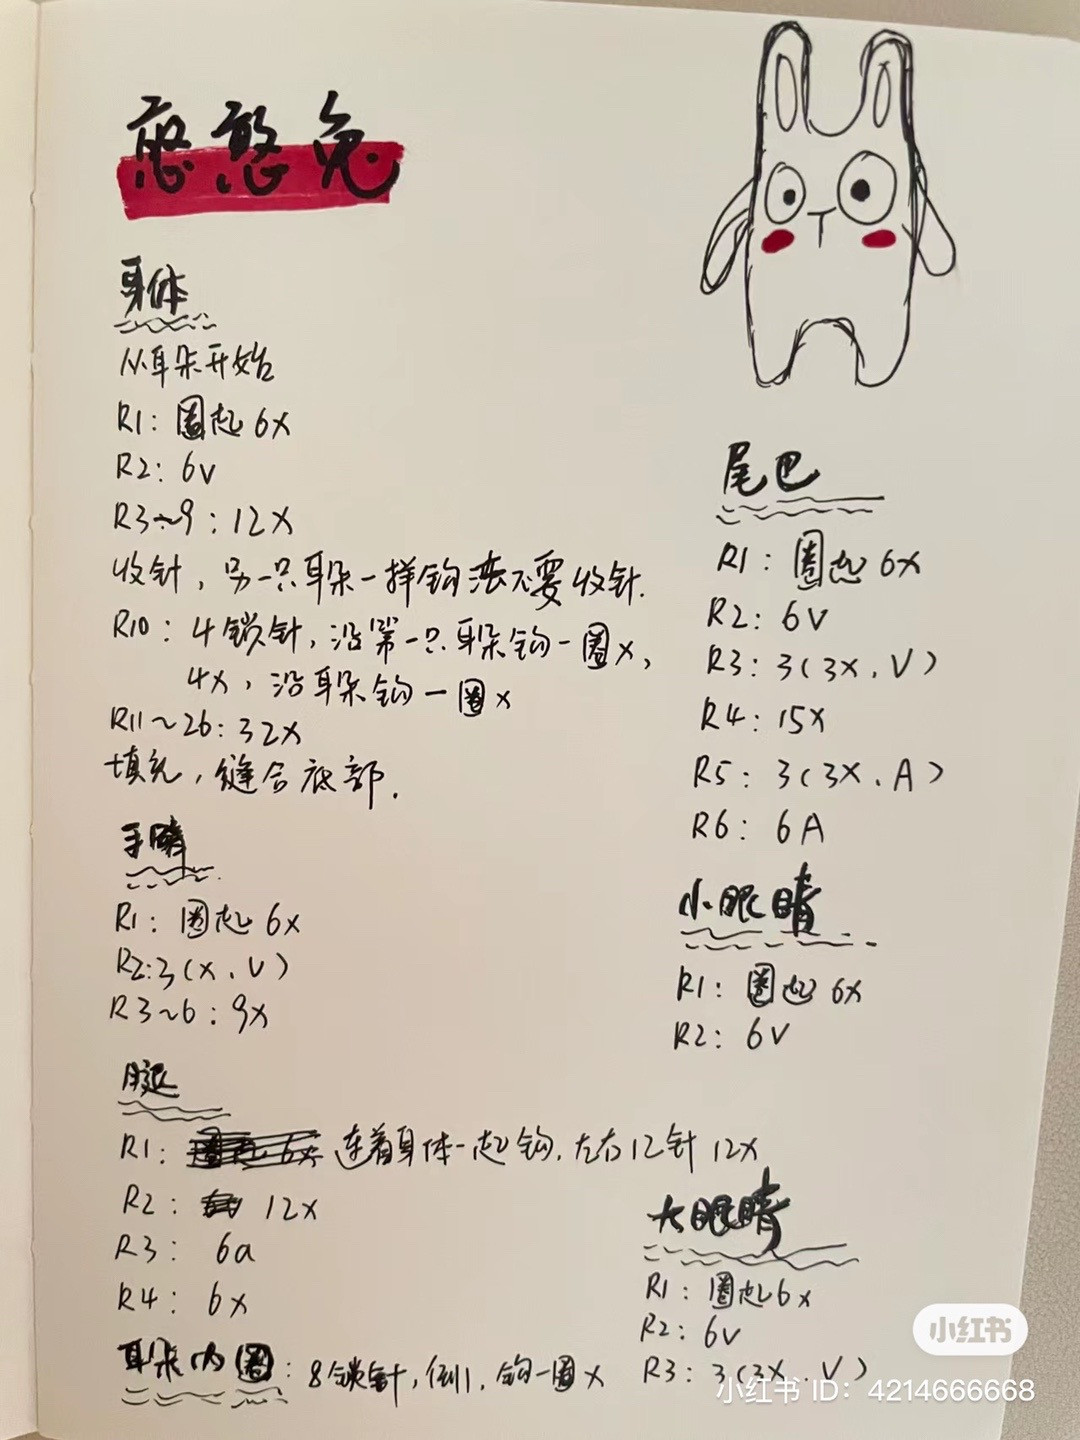 憨憨兔
身体
从耳朵开始
R1: 圈起 6x
R2: 6v
R3~9: 12x
收针，另一只耳朵一样钩法不要收针.
R10: 4锁针，沿第一只耳朵钩一圈x，
4x，沿耳朵钩一圈x
R11~26: 32x
填充，缝合底部.
手臂
R1: 圈起 6x
R2: 3(x、v)
R3~6: 9x
腿
R1: 连着身体一起钩，左右12针 12x
R2: 12x
R3: 6a
R4: 6x
耳朵内圈: 8锁针，倒1，钩一圈x
尾巴
R1: 圈起 6x
R2: 6v
R3: 3(3x、v)
R4: 15x
R5: 3(3x、A)
R6: 6A
小眼睛
R1: 圈起 6x
R2: 6v
大眼睛
R1: 圈起6x
R2: 6v
R3: 3(3x、v)
小红书
小红书 ID: 4214666668